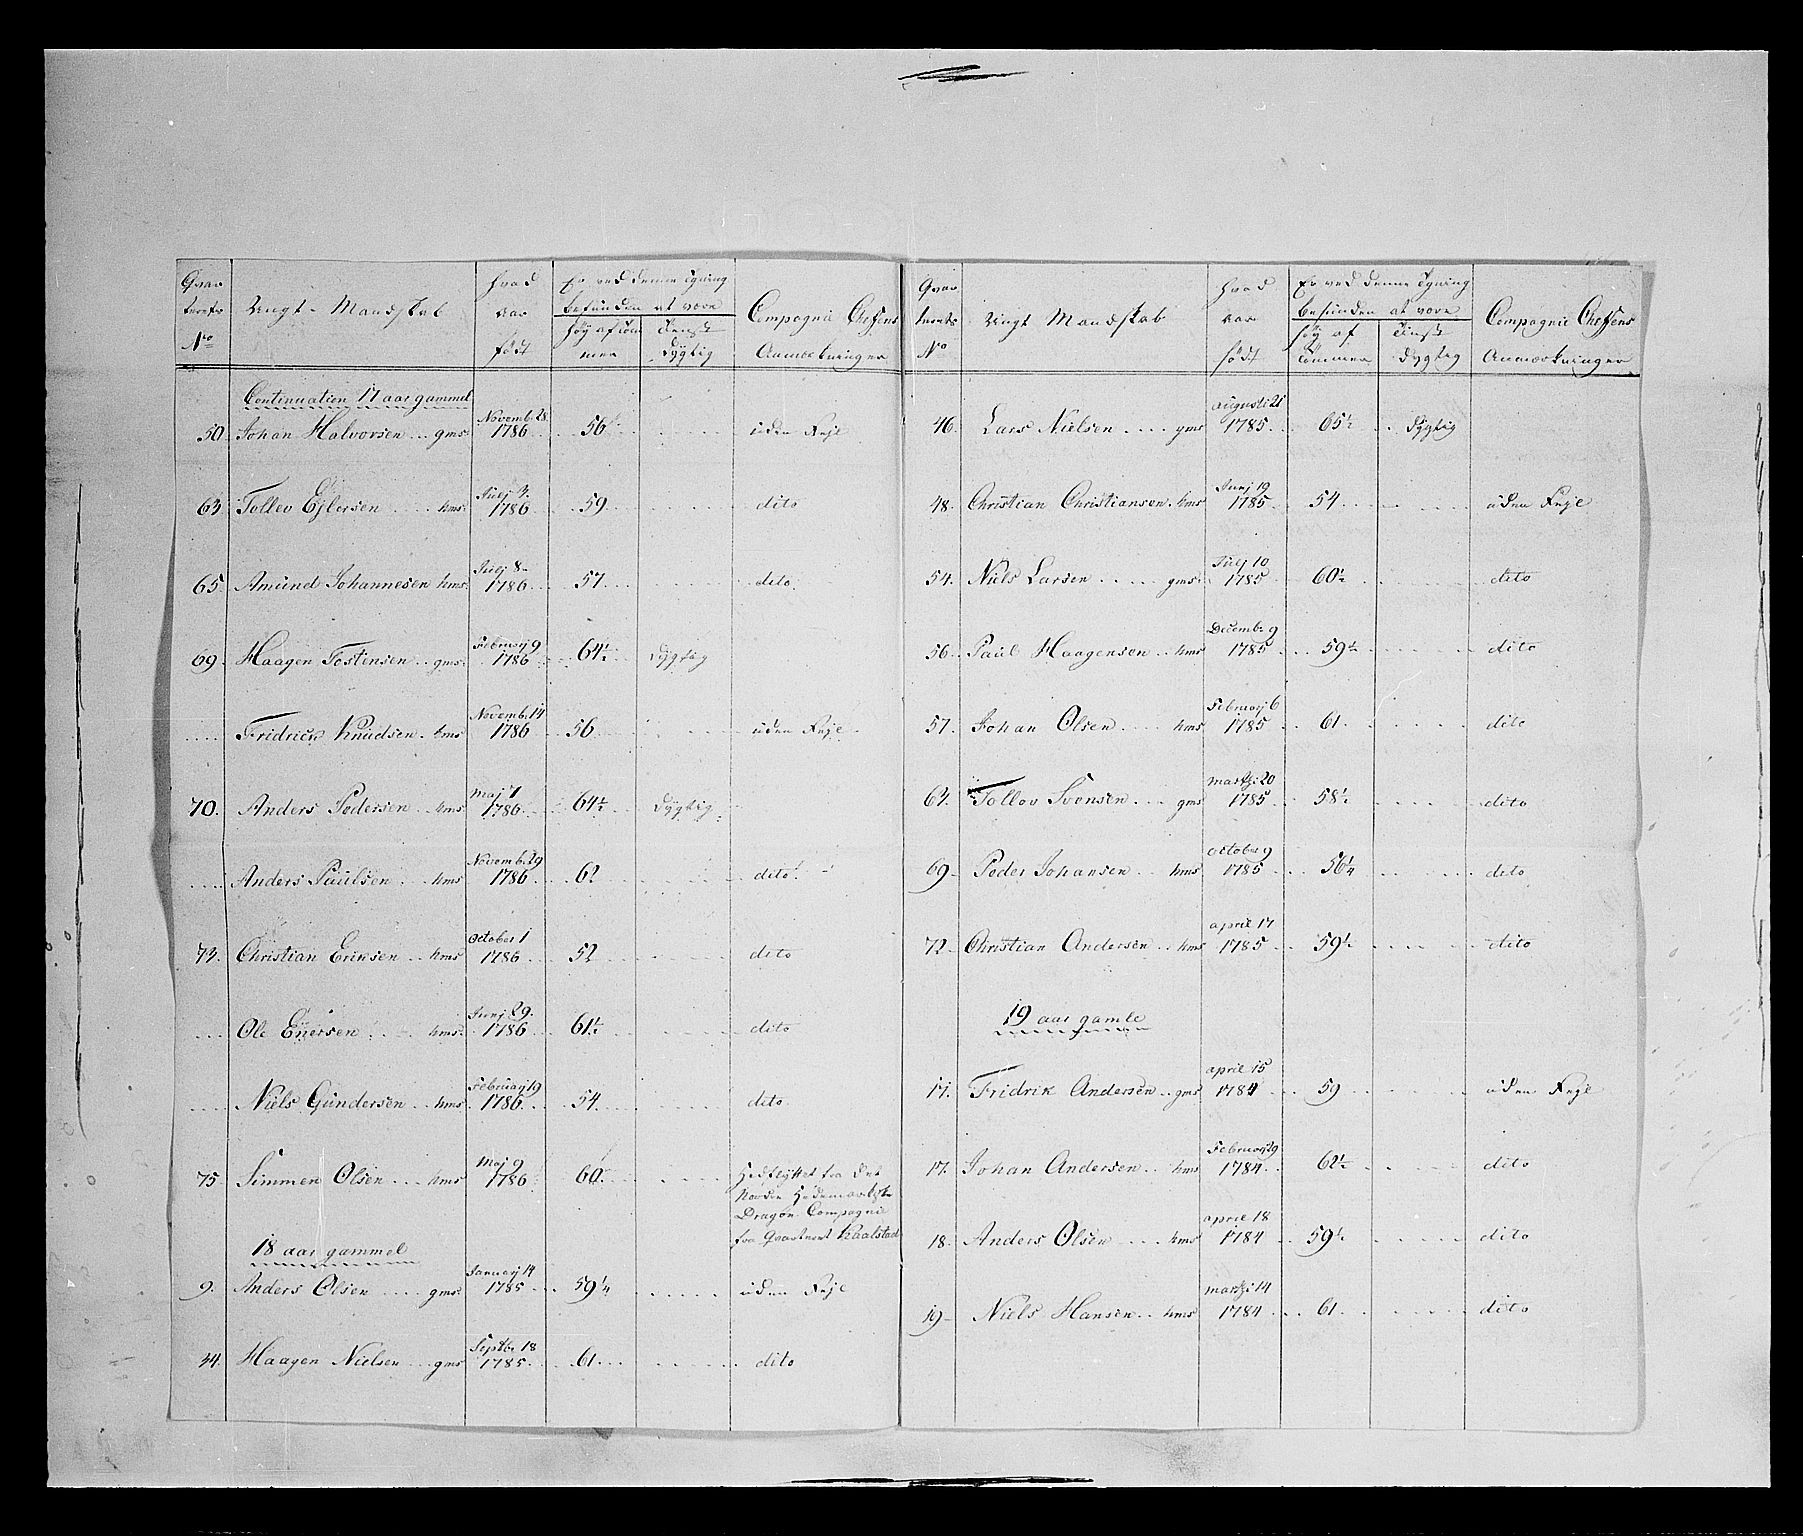 Qvar terets No | Ungt Mandskab | hvad aar født | Er ved denne Sÿning befunden at være høÿ af tom mer | tienst dÿgtig | Compagnie Chefens Anmærkninger
Continuation 17 aar gammel
50. Johan Halvorsen gms: Novemb: 28 1786 56 uden Feÿl
63. Tollev Ejlersen hms: Julj 3. 1786 59 dito
65. Amund Johannesen hms: Julj 8 1786 57 dito
69. Haagen Tostinsen gms: Februarj 9 1786 64½ Dÿgtig
Fridrick Knudsen hms Novemb: 14 1786 56 uden Feÿl
70. Anders Pedersen hms Maj 1 1786 64½ Dÿgtig
Anders Paulsen hms Novemb: 29 1786 62 dito
73. Christian Eriksen hms October 1 1786 52 dito
Ole Enersen hms: Junj 29. 1786 61½ dito
Niels Gundersen hms Februarj 19 1786 54 dito
75. Simmen Olsen hms Maj 9 1786 60 Hedflyttet fra det
Nordre Hedemarkske
Dragon Compagnie
fra Qvarteret Kaalstad
18 aar gammel
9. Anders Olsen gms: Januarj 14 1785 59¼ uden Feÿl
44. Haagen Nielsen gms Septbr: 18 1785 61 dito
Qvar terets No | Ungt Mandskab | hvad aar født | Er ved denne Sÿning befunden at være høÿ af tommer | tienst dygtig | Compagnie Chefens Anmærkninger
46. Lars Nielsen gms augusti 21 1785 65½ dÿgtig
48. Christian Christiansen hms Junj 19 1785 54 uden Feÿl
54. Niels Larsen gms: Julj 10 1785 60½ dito
56. Paul Haagensen hms Decemb: 9 1785 59½ dito
57. Johan Olsen hms Februarj 6 1785 61 dito
64. Tollov Svensen gms martzi: 20 1785 58½ dito
69. Peder Johansen hms October 9 1785 56¼ dito
72. Christian Andersen hms april 17 1785 59½ dito
19 aar gamle
17. Fridrik Andersen gms april 15 1784 59 uden Feÿl
17. Johan Andersen hms Februarj 29 1784 62½ dito
18. Anders Olsen hms april 18 1784 59½ dito
19. Niels Hansen hms martzi 14 1784 61 dito